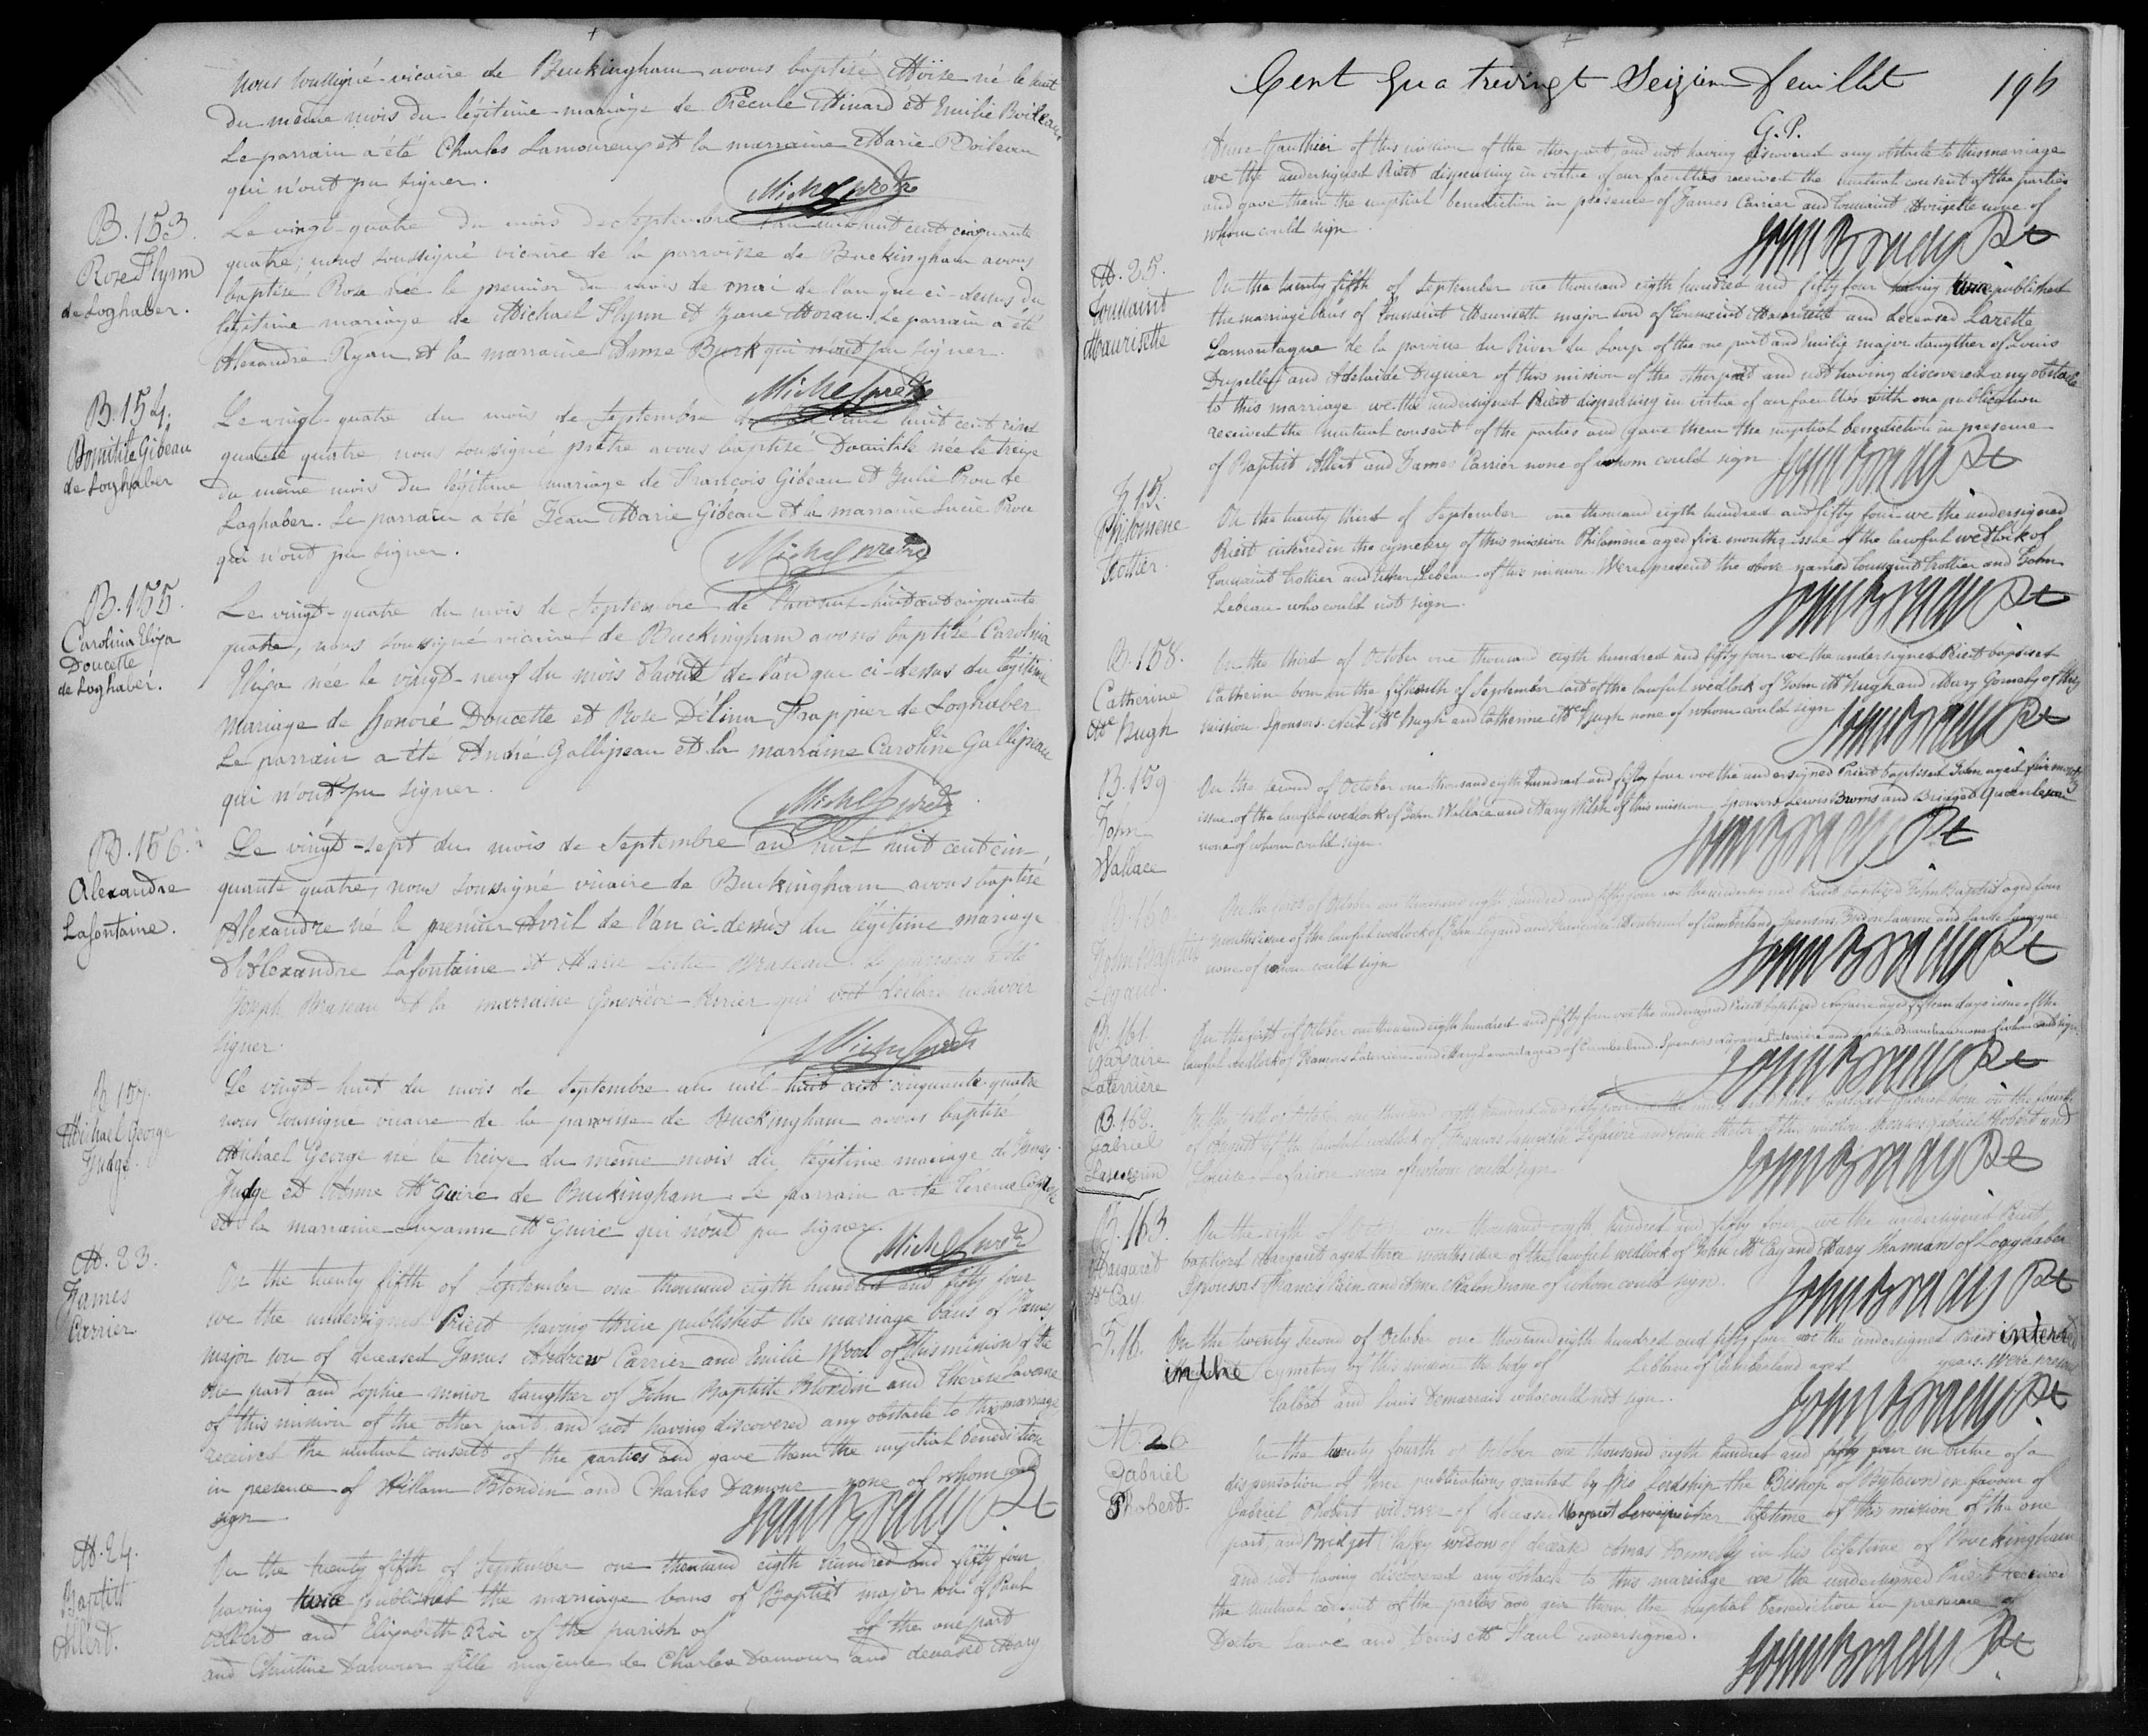 Nous soussigné vicaire de Buckingham avons baptisé Moïse né le huit
du même mois du légitime mariage de Minard et Emilie Boileau
Le parrain a été Charles Lamoureux et la marraine Marie Boileau
qui n'ont pu signer.
Michel ptre
B. 153.
Rose Flynn
de Loghaber.
Le vingt-quatre du mois de Septembre l'an mil huit cent cinquante
quatre, nous soussigné vicaire de la paroisse de Buckingham avons
baptisé Rose née le premier du mois de mai de l'an que ci-dessus du
légitime mariage de Michael Flynn et Jane Moran. Le parrain a été
Alexandre Ryan et la marraine Anne Burk qui n'ont pu signer.
Michel ptre
B. 154.
Domitile Gibeau
de Loghaber
Le vingt-quatre du mois de Septembre de l'an mil huit cent cin
quante quatre, nous soussigné prêtre avons baptisé Domitile née le treize
du même mois du légitime mariage de François Gibeau et Julie Prou de
Loghaber. Le parrain a été Jean Marie Gibeau et la marraine Lucie Prou
qui n'ont pu signer.
Michel ptre
B. 155.
Carolina Eliza
Doucette
de Loghaber.
Le vingt-quatre du mois de Septembre de l'an mil-huit cent cinquante
quatre, nous soussigné vicaire de Buckingham avons baptisé Carolina
Eliza née le vingt-neuf du mois d'août de l'an que ci-dessus du légitime
mariage de Honoré Doucette et Rose Délina Frappier de Loghaber
Le parrain a été André Gallipeau et la marraine Caroline Gallipeau
qui n'ont pu signer.
Michel ptre
B. 156.
Alexandre
Lafontaine.
Le vingt-sept du mois de Septembre an mil huit cent cin-
quante quatre, nous soussigné vicaire de Buckingham avons baptisé
Alexandre né le premier Avril de l'an ci-dessus du légitime mariage
d'Alexandre Lafontaine et Marie Braseau. Le parrain a été
Joseph Braseau et la marraine Geneviève Perrier qui ont déclaré ne savoir
signer.
Michel ptre
B. 157.
Michael George
Judge.
Le vingt-huit du mois de Septembre an mil-huit cent cinquante-quatre
nous soussigné vicaire de la paroisse de Buckingham avons baptisé
Michael George né le treize du même mois du légitime mariage de James
Judge et Anne McGuire de Buckingham. Le parrain a été Terence
et la marraine Suzanne McGuire qui n'ont pu signer.
Michel ptre
M. 23.
James
Carrier
On the twenty fifth of September one thousand eigth hundred and fifty four
we the undersigned Priest having thrice published the marriage bans of James
major son of deceased James Andrew Carrier and Emilie Wood of this mission of the
one part and Sophie minor daugther of John Baptiste Blondin and Thérèse Laverne
of this mission of the other part, and not having discovered any obstacle to this marriage
received the mutual consent of the parties and gave them the nuptial benediction
in presence of William Blondin and Charles Damour none of whom could
sign
John Brady Pt
M. 24.
Baptist
Albert.
On the twenty fifth of September one thousand eigth hundred and fifty four
having twice published the marriage bans of Baptist major son of Paul
Albert and Elizabeth Roi of the parish of of the one part
and Christine Damour fille majeure de Charles Damour and deceased Mary
Cent Quatrevingt Seizieme feuillet 196
G.P.
Anne Gauthier of this mission of the other part, and not having discovered any obstacle to this marriage
we the undersigned Priest dispensing in virtue of our faculties received the mutual consent of the parties
and gave them the nuptial benediction in presence of James Carrier and Toussaint Mourisette none of
whom could sign.
John Brady Pt
M. 25.
Toussaint
Maurisette
On the twenty fifth of September one thousand eigth hundred and fifty four having twice published
the marriage bans of Toussaint Maurisette major son of Toussaint Maurisette and deceased Lazette
Lamontagne de la paroisse du River du Loup of the one part and Emilie major daugther of Louis
Dupelle and Adelaide Dequier of this mission of the other part and not having discovered any obstacle
to this marriage we the undersigned Priest dispensing in virtue of our faculties with one publication
received the mutual consent of the parties and gave them the nuptial benediction in presence
of Baptist Albert and James Carrier none of whom could sign
John Brady Pt
S. 15.
Philomene
Trottier.
On the twenty third of September one thousand eigth hundred and fifty four we the undersigned
Priest interred in the cymetery of this mission Philomene aged five months issue of the lawful wedlock of
Toussaint Trottier and Esther Lebeau of this mission. Were present the above named Toussaint Trottier and John
Lebeau who could not sign.
John Brady Pt
B. 158.
Catherine
McHugh
On the third of October one thousand eigth hundred and fifty four we the undersigned Priest baptised
Catherine born on the fifteenth of September last of the lawful wedlock of John McHugh and Mary Gormely of this
mission. Sponsors Neil McHugh and Catherine McHugh none of whom could sign
John Brady Pt
B. 159
John
Wallace
On the second of October one thousand eigth hundred and fifty four we the undersigned Priest baptised John aged five months
issue of the lawful wedlock of John Wallace and Mary Welsh of this mission. Sponsors Lewis Burns and Bridget
none of whom could sign.
John Brady Pt
B. 160.
John Baptist
Legaud.
On the first of October one thousand eigth hundred and fifty four we the undersigned Priest baptised John Baptist aged four
months issue of the lawful wedlock of John Legaud and of Cumberland. Sponsors Isidore Laverne and
none of whom could sign
John Brady Pt
B. 161.
Nazaire
Laterriere
On the first of October one thousand eigth hundred and fifty four we the undersigned Priest baptised Nazaire aged fifteen days issue of the
lawful wedlock of François Laterriere and Mary Lamontagne of Cumberland. Sponsors Laterriere and none of whom could sign
John Brady Pt
B. 162.
Gabriel
of August of the lawful wedlock of François Lefaivre and Louise of this mission. Sponsors Gabriel Phobert and
Louise Lefaivre none of whom could sign.
John Brady Pt
B. 163.
Margaret
McCay
On the eigth of one thousand eigth hundred and fifty four we the undersigned Priest
baptised Margaret aged three months issue of the lawful wedlock of John McCay and Mary Shannan of Loughaber
Sponsors Francis Cain and Anne none of whom could sign.
John Brady Pt
S. 16.
On the twenty second of October one thousand eigth hundred and fifty four we the undersigned Priest interred
in the cymetery of this mission the body of Leblanc of Cumberland aged years. Were present
Talbot and Louis Demarrais who could not sign.
John Brady Pt
M 26
Gabriel
Phobert.
On the twenty fourth of October one thousand eigth hundred and fifty four in virtue of a
dispensation of three publications granted by his Lordship the Bishop of Bytown in favour of
Gabriel Phobert widower of deceased Margaret in her lifetime of this mission of the one
part, and Bridget widow of deceased in his lifetime of Buckingham
and not having discovered any obstacle to this marriage we the undersigned Priest received
the mutual consent of the parties and gave them the nuptial benediction in presence of
Doctor and Denis McFaul undersigned.
John Brady Pt